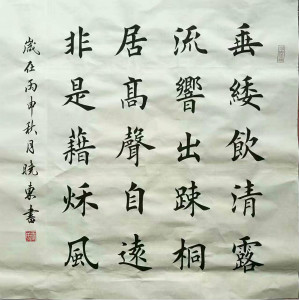 垂緌飲清露
流響出踈桐
居髙聲自遠
非是藉秌風
歲在丙申秋月曉東書